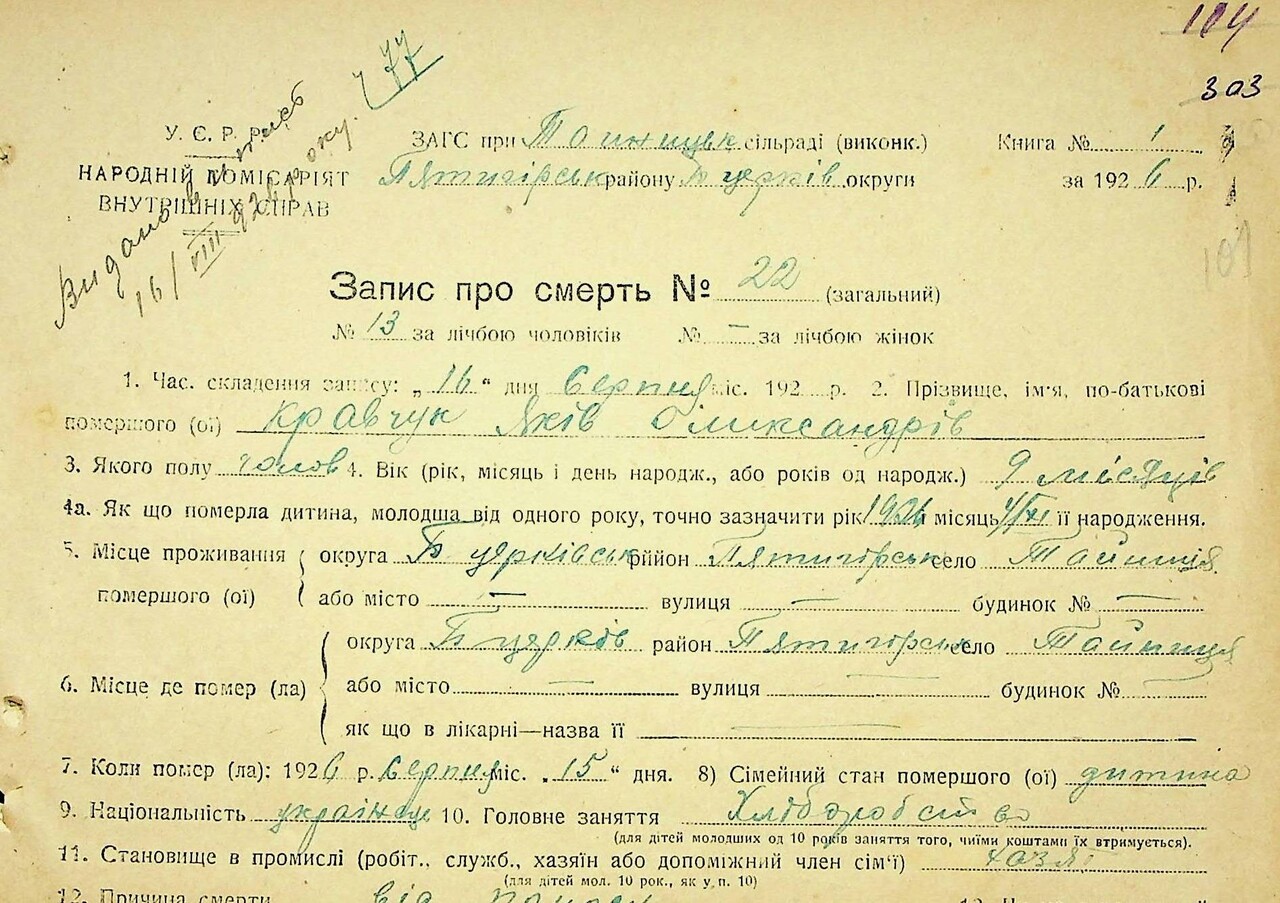 104
303
177
Видано витпсь
16/VIII 926 року.
У. Є. Р. Р.
НАРОДНІЙ КОМІСАРІЯТ
ВНУТРІШНІХ СПРАВ
ЗАГС при Тайницьк сільраді (виконк.)
Пятигірськ району Б церків округи
Книга № 1
за 1926 р.
101
Запис про смерть № 22 (загальний)
№ 13 за лічбою чоловіків № — за лічбою жінок
1. Час. складення запису: „16“ дня Серпня міс. 192 р. 2. Прізвище, ім'я, по-батькові
помершого (ої) Кравчук Яків Оликсандрів
3. Якого полу чолов 4. Вік (рік, місяць і день народж., або років од народж.) 9 місяців
4а. Як що померла дитина, молодша від одного року, точно зазначити рік місяць її народження.
5. Місце проживання помершого (ої) округа Б церківськ район Пятигорськ село Тайниця
або місто — вулиця — будинок № —
6. Місце де помер (ла) округа Б церків район Пятигорськ село Тайниця
або місто — вулиця — будинок № —
як що в лікарні—назва її —
7. Коли помер (ла): 1926 р. Серпня міс. „15“ дня. 8) Сімейний стан помершого (ої) дитина
9. Національність українец 10. Головне заняття Хліборобство
(для дітей молодших од 10 років заняття того, чиїми коштами їх втримується).
11. Становище в промислі (робіт., служб., хазяїн або допоміжний член сім'ї)
(для дітей мол. 10 рок., як у п. 10)
12. Причина смерти від поносу